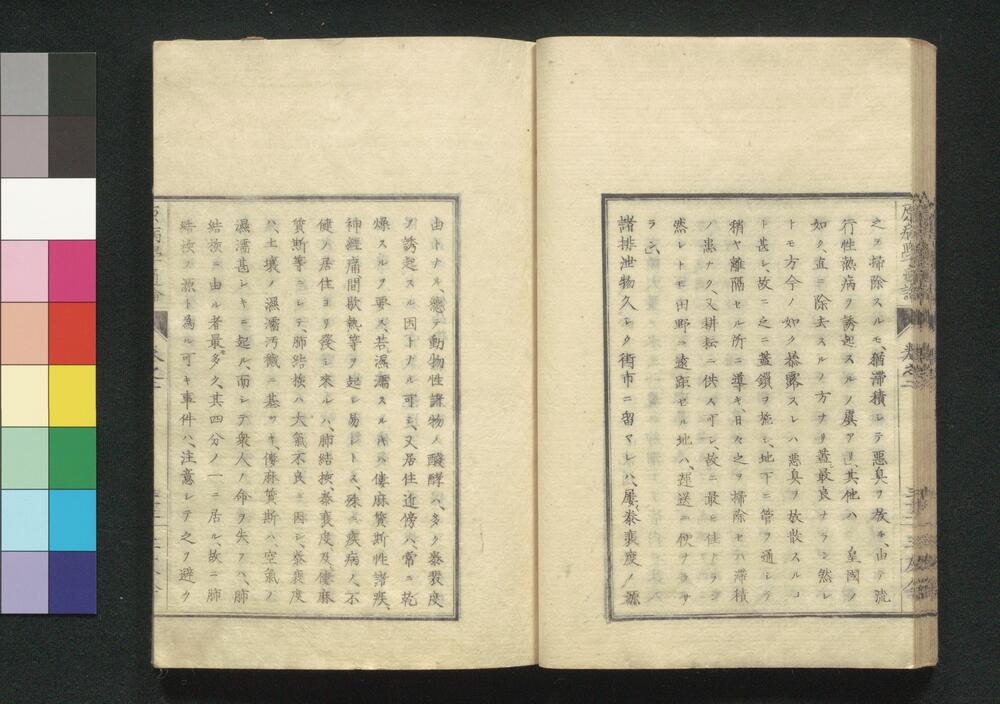 之ヲ掃除スルモ、猶滯積シテ惡臭ヲ放チ、由テ流
行性熱病ヲ誘起スルノ虞アリ、其他ハ 皇國ノ
如ク直ニ除去スルノ方ナリ蓋最良ナラン然レ
トモ方今ノ如ク暴露スレハ惡臭ヲ放散スルコ
ト甚シ、故ニ之ニ蓋鎖ヲ施シ、地下ニ管ヲ通シテ
稍ヤ離隔セル所ニ導キ、日々之ヲ掃除セハ滯積
ノ患ナク又耕耘ニ供ス可シ、故ニ最モ佳トラン
然レトモ田野ニ遠距セル地ハ、運送ニ便ナラサ
ラン、
諸排泄物久シク街市ニ留マレハ、屢泰衰度ノ源
由トナル、總テ動物性諸物ノ醱酵ハ、多ク泰衰度
ヲ誘起スル因トナル可シ、又居住近傍ハ常ニ乾
燥スルヲ要ス、若濕濡スル片ハ僂麻質斯性諸疾、
神經痛間歇熱等ヲ起シ易シトス、殊ニ疾病ノ不
健ノ居住ヨリ發シ來ルハ、肺結核泰衰度及僂麻
質斯等ニシテ、肺結核ハ大氣不良ニ因シ、泰衰度
ハ土壤ノ濕濡汚穢ニ基ツキ、僂麻質斯ハ、空氣ノ
濕濡甚シキニ起ル、而シテ衆人ノ命ヲ失フハ、肺
結核ニ由ル者最多久、其四分ノ一ニ居ル、故ニ肺
結核ノ源ト為ル可キ事件ハ、注意シテ之ヲ避ク